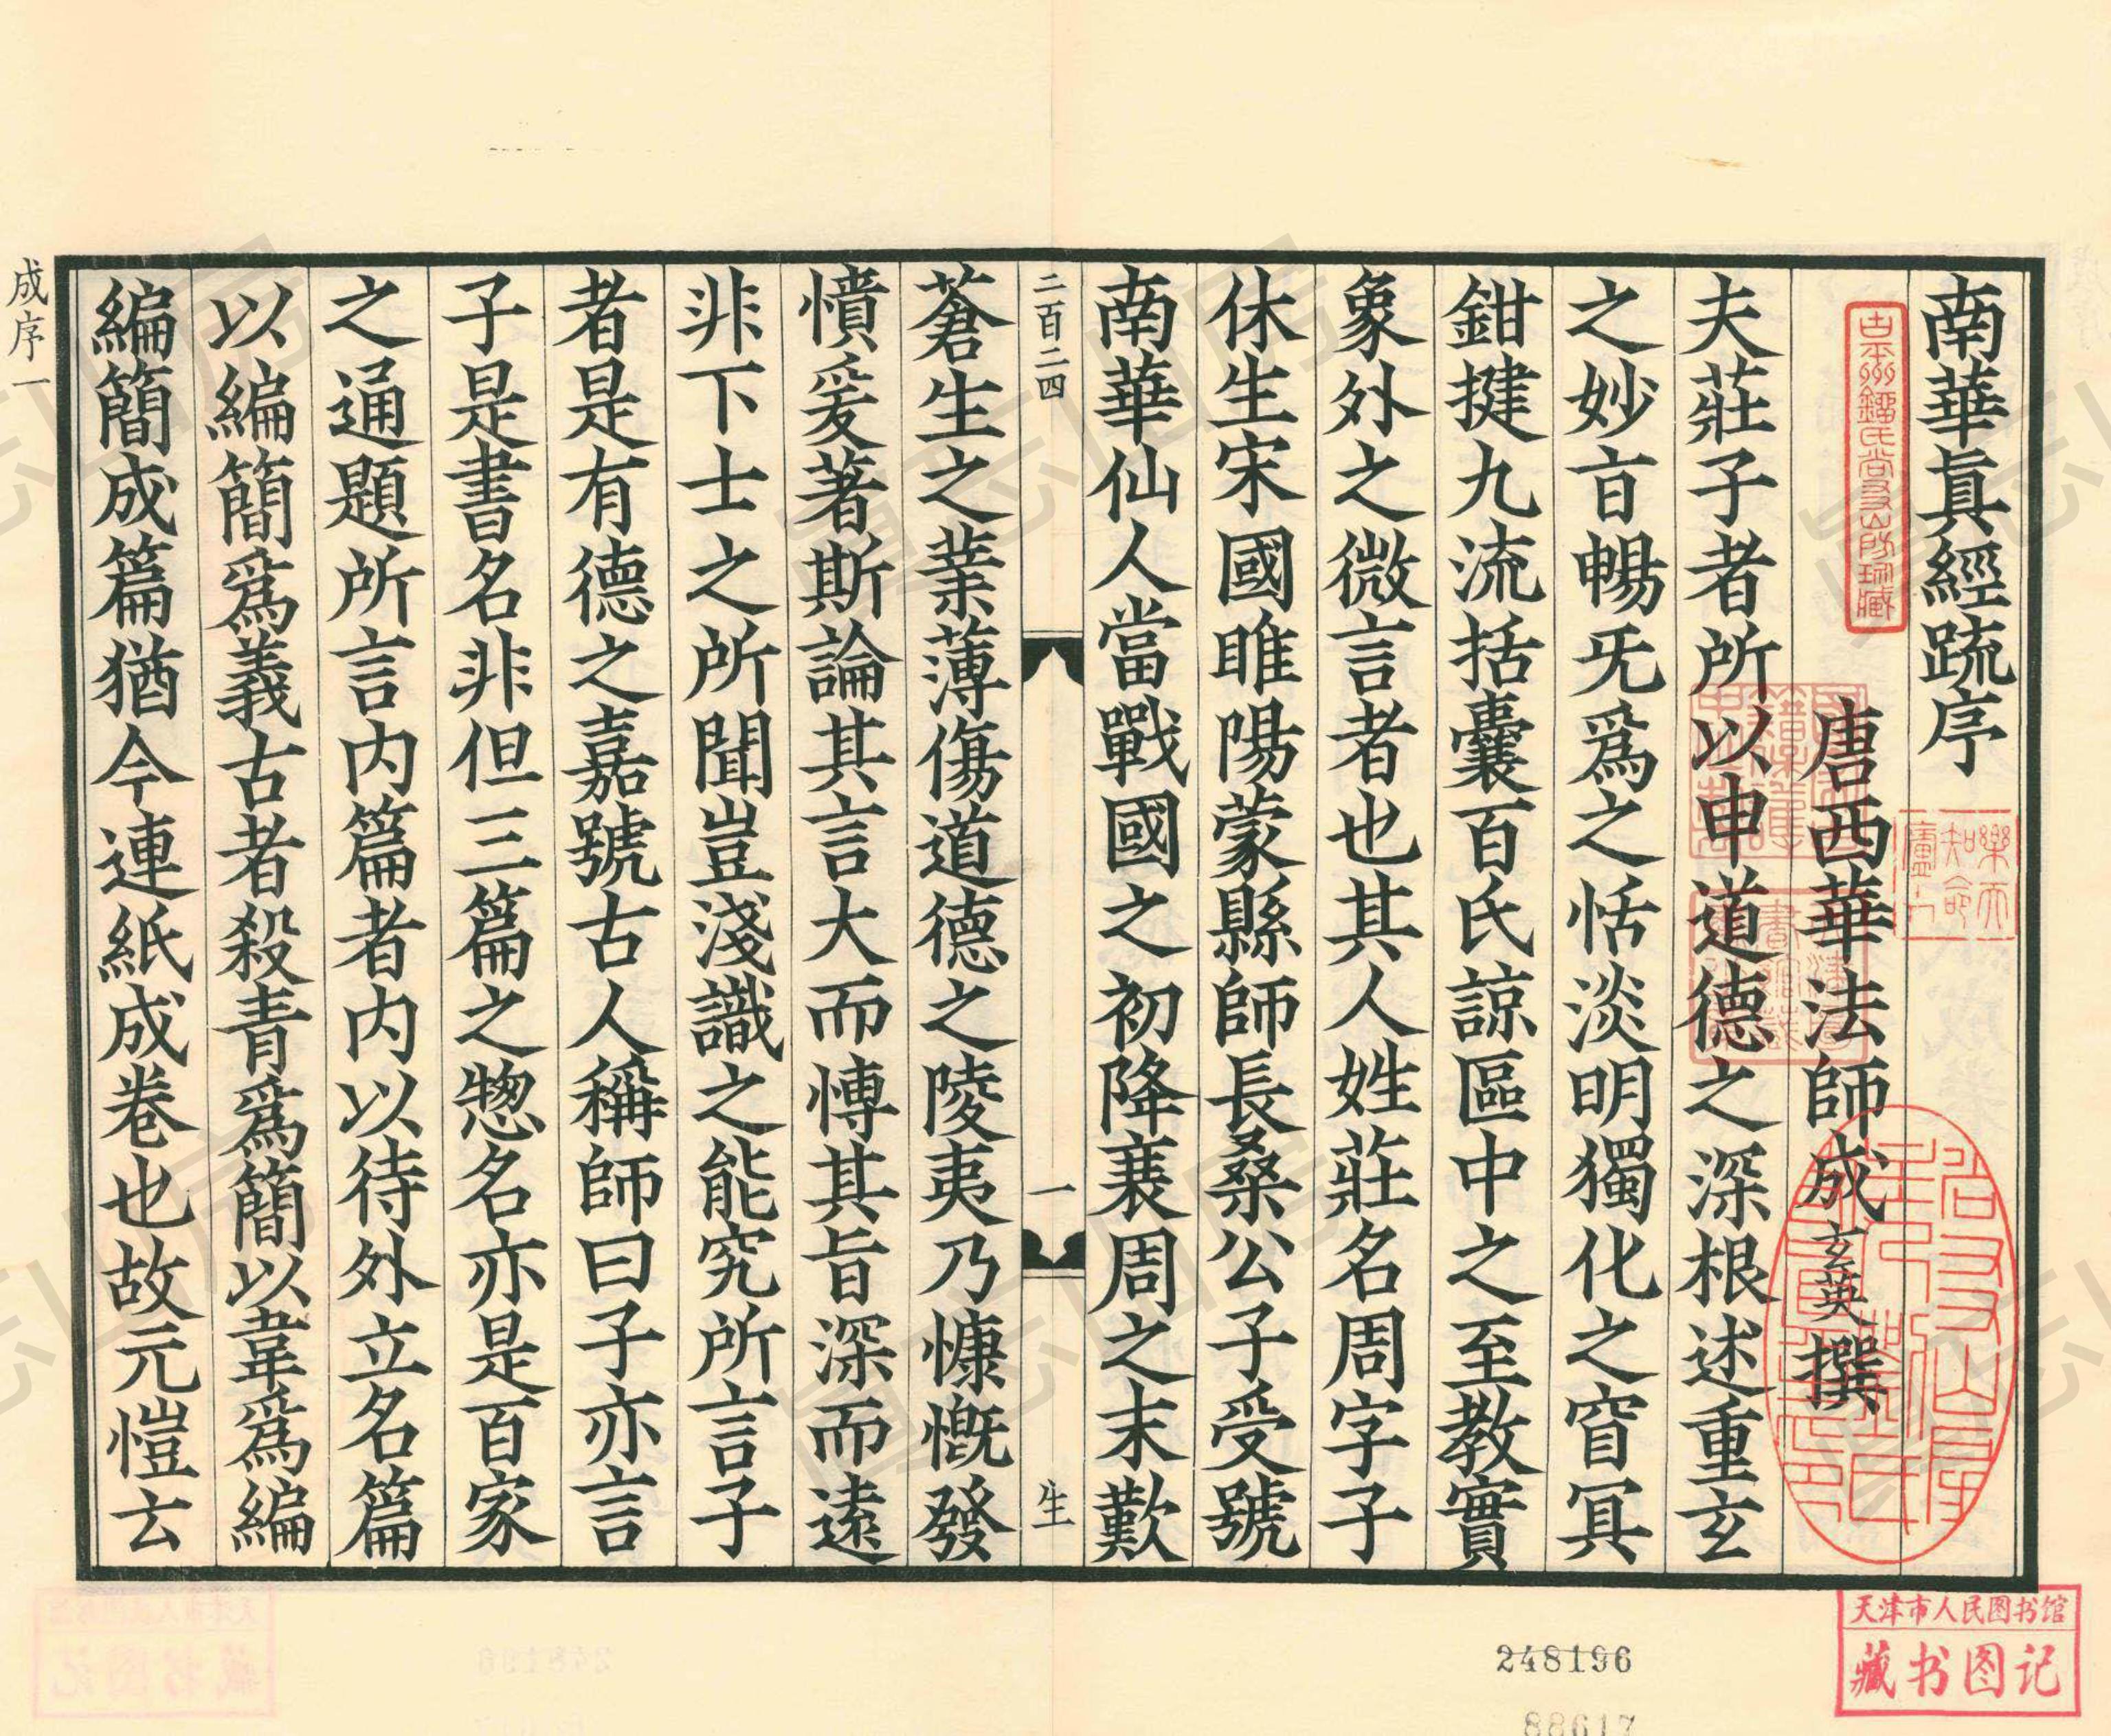 南華真經疏序
唐西華法師成玄英撰
夫莊子者所以申道德之深根述重玄
之妙㫖暢旡爲之恬淡明獨化之窅冥
鉗揵九流括囊百氏諒區中之至教實
象外之微言者也其人姓莊名周字子
休生宋國睢陽蒙縣師長桑公子受號
南華仙人當戰國之初降衰周之末歎
二百二四
一
生
蒼生之業薄傷道德之陵夷乃慷慨發
憤爰著斯論其言大而愽其旨深而遠
非下士之所聞豈淺識之能究所言子
者是有德之嘉號古人稱師曰子亦言
子是書名非但三篇之惣名亦是百家
之通題所言内篇者内以待外立名篇
以編簡爲義古者殺青爲簡以韋爲編
編簡成篇猶今連紙成卷也故元愷云
成序一
天津市人民图书馆
藏书图记
248196
88617